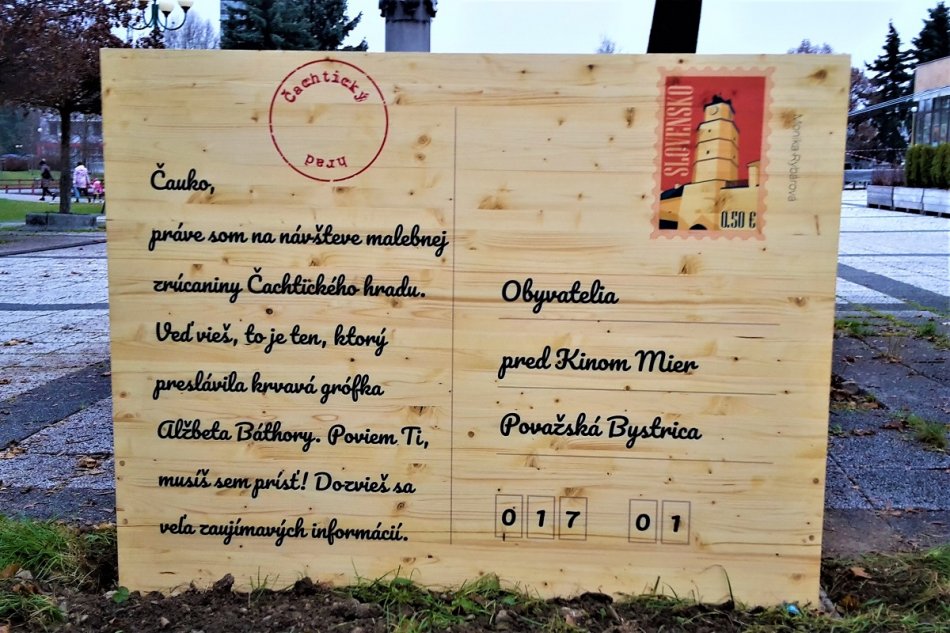 Čachtický
hrad
Čauko,
práve som na návšteve malebnej
zrúcaniny Čachtického hradu.
Veď vieš, to je ten, ktorý
preslávila krvavá grófka
Alžbeta Báthory. Poviem Ti,
musíš sem prísť! Dozvieš sa
veľa zaujímavých informácií.
SLOVENSKO
0.50 €
Monika Rybárová
Obyvatelia
pred Kinom Mier
Považská Bystrica
017 01